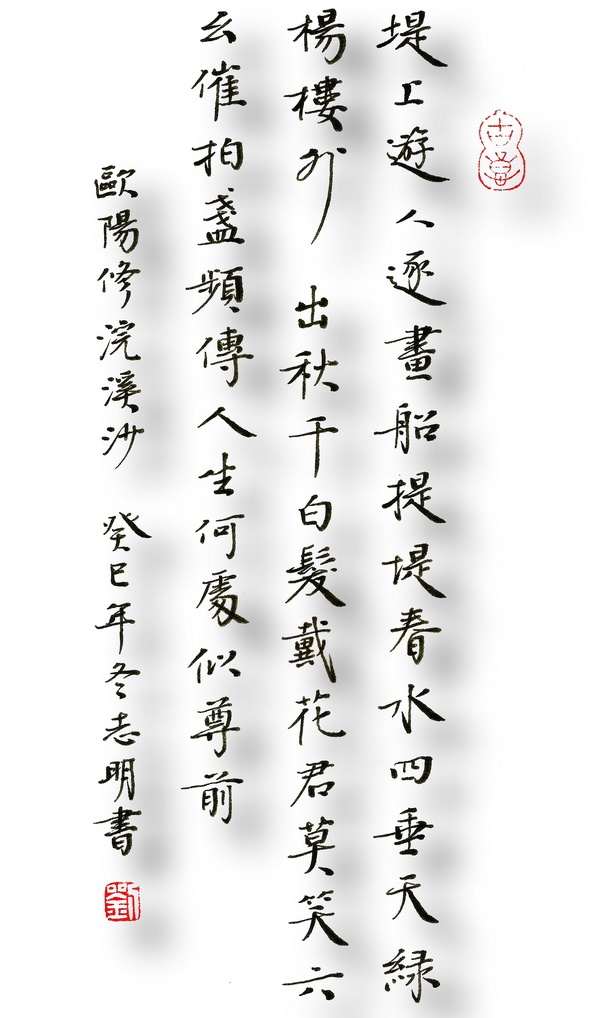 堤上遊人逐畫船提堤春水四垂天緑
楊樓外 出秋千白髮戴花君莫笑六
幺催拍盞頻傳人生何處似尊前
歐陽修浣溪沙 癸巳年冬志明書
劉